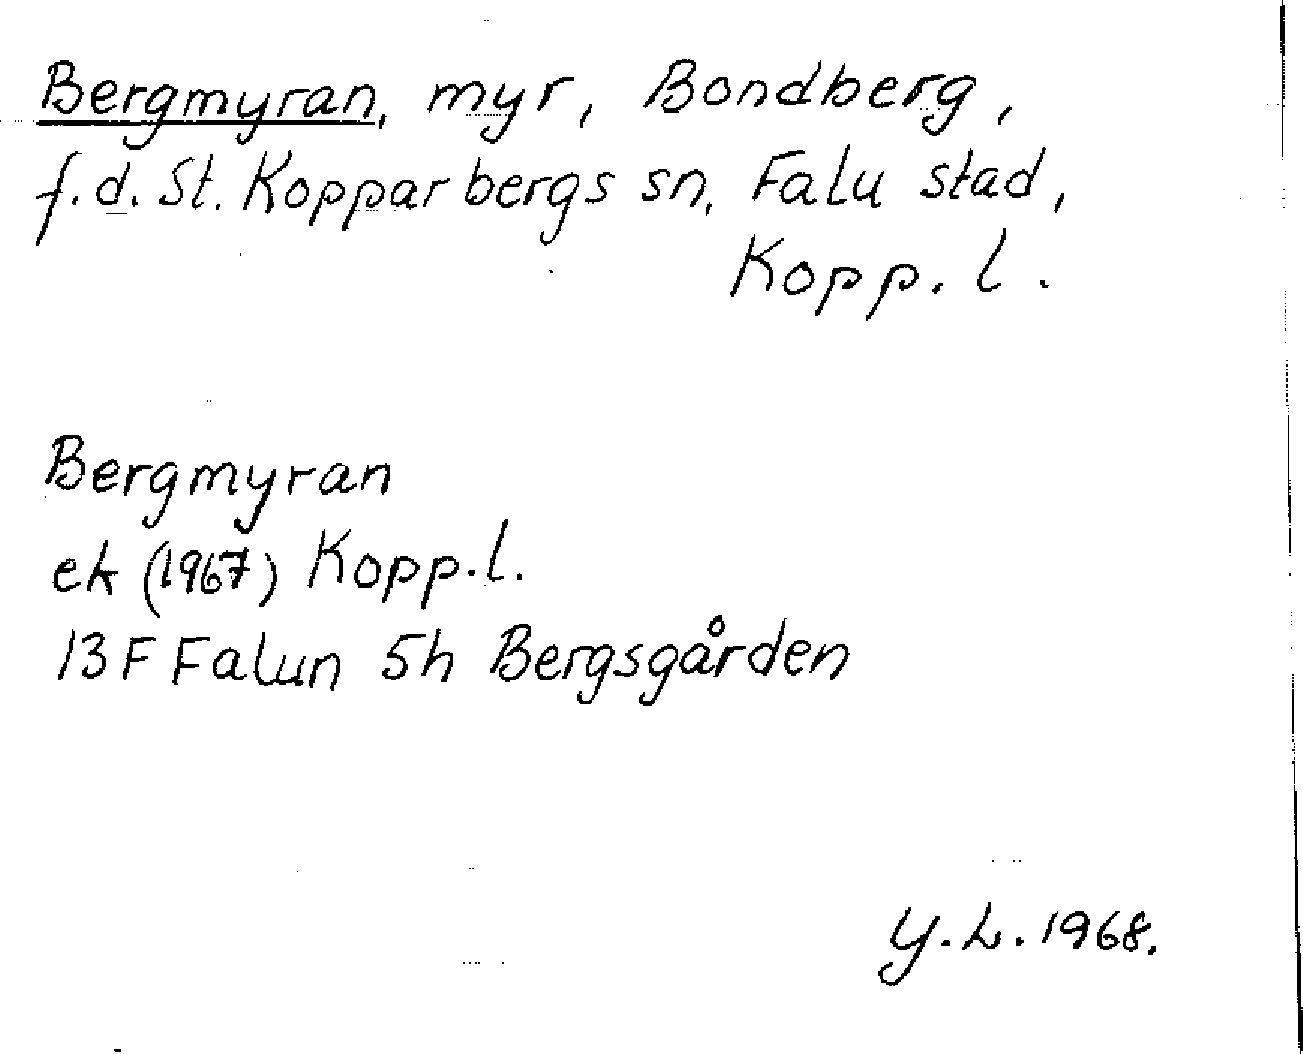 Bergmyran, myr, Bondberg,
f.d. St. Kopparbergs sn, Falu stad,
Kopp. l.
Bergmyran
ek (1967) Kopp. l.
13 F Falun 5h Bergsgården
Y. L. 1968.